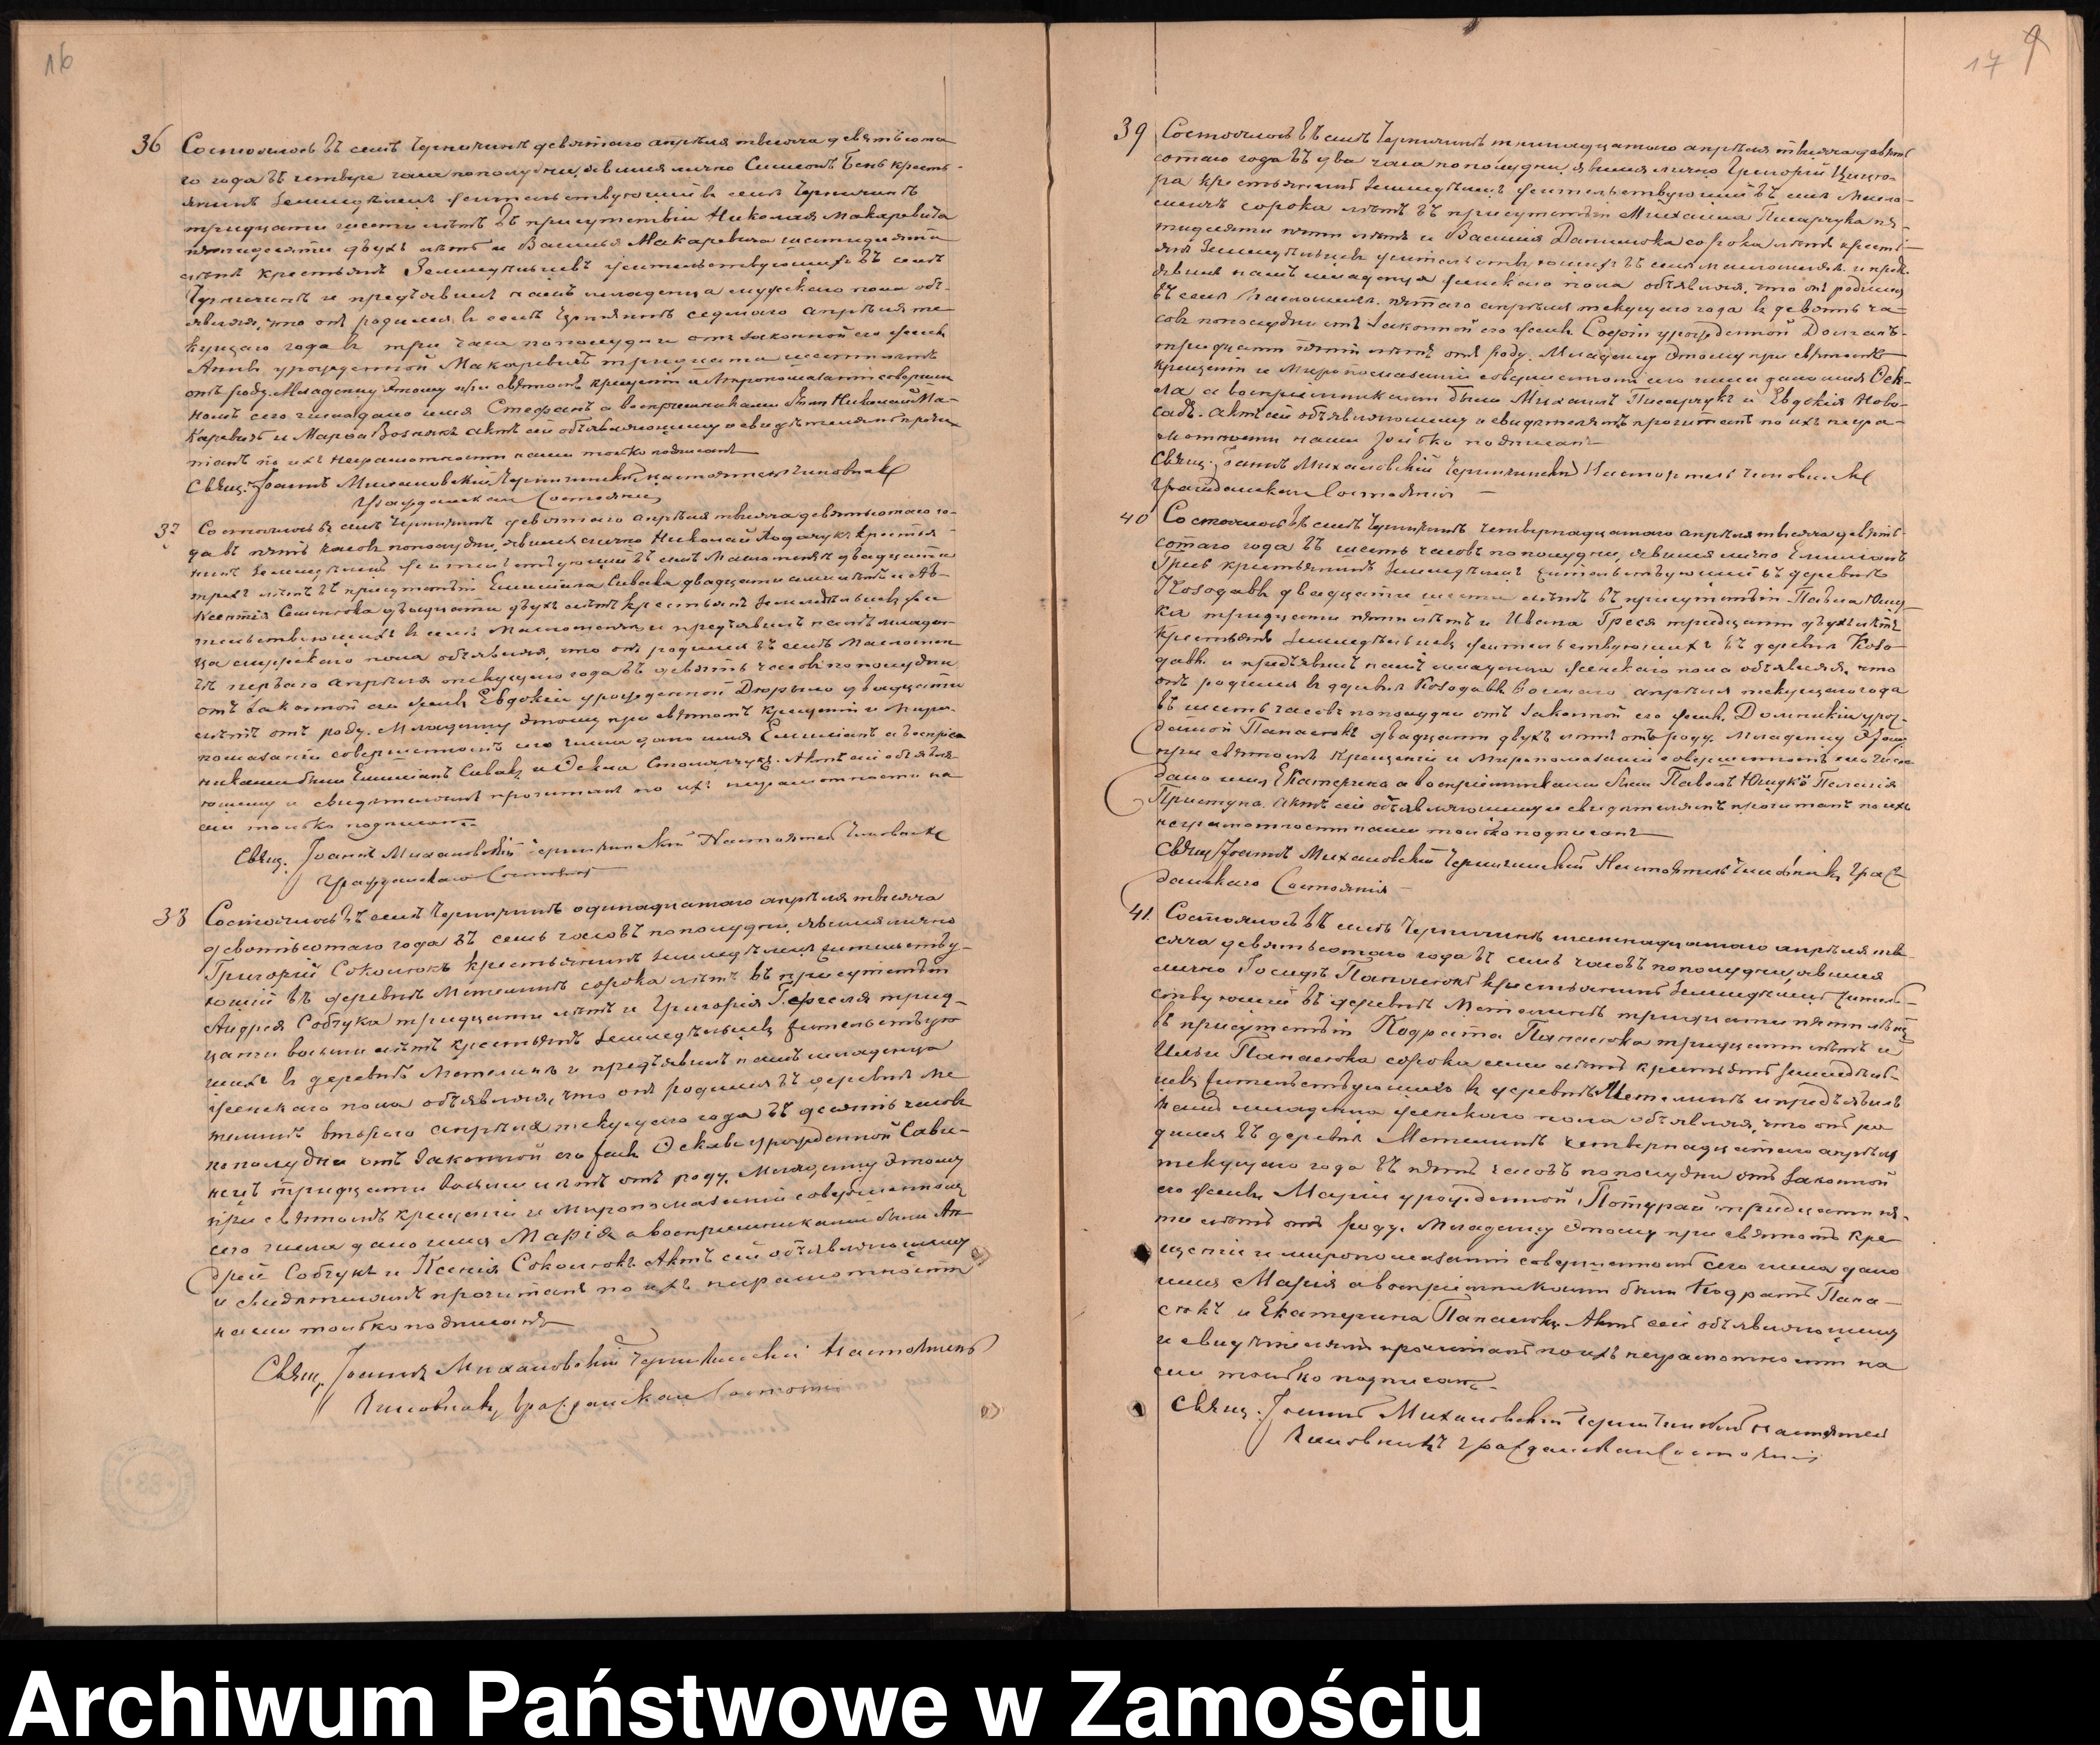 16
36 Состоялось въ селѣ Черничинѣ девятаго апрѣля тысяча девятьсота
го года въ четыре часа пополудни, явился лично Симеонъ Бень кресть-
янинъ земледѣлецъ жительствующій въ селѣ Черничинѣ
тридцати шести лѣтъ въ присутствіи Николая Макаревича
пятидесяти двухъ лѣтъ и Василія Макаревича шестидесяти
лѣтъ крестьянъ земледѣльцевъ жительствующихъ въ селѣ
Черничинѣ и предъявилъ намъ младенца мужскаго пола объ-
являя, что онъ родился въ селѣ Черничинѣ седьмаго апрѣля те
кущаго года въ три часа пополудни отъ законной его жены
Анны урожденной Макаревичъ тридцати шести лѣтъ
отъ роду. Младенцу этому при святомъ крещеніи и Миропомазаніи совершен
номъ сего числа дано имя Стефанъ а воспріемниками были Николай Ма-
каревичъ и Марѳа Возьнякъ Актъ сей объявляющему и свидѣтелямъ прочи
танъ по ихъ неграмотности нами только подписанъ
Свящ. Іоаннъ Михаловскій Черничинскій настоятель Чиновникъ
Гражданскаго Состоянія
37 Состоялось въ селѣ Черничинѣ девятаго апрѣля тысяча девятьсотаго го-
да въ пять часовъ пополудни, явился лично Николай Кодачукъ крестья-
нинъ земледѣлецъ жительствующій въ селѣ Маломенчѣ двадцати
трехъ лѣтъ въ присутствіи Емиліана Сивака двадцати семи лѣтъ и Ав-
ксентія Семенюка двадцати двухъ лѣтъ крестьянъ земледѣльцевъ жи
тельствующихъ въ селѣ Маломенчѣ и предъявилъ намъ младен-
ца мужскаго пола объявляя, что онъ родился въ селѣ Маломен
чѣ перваго апрѣля текущаго года въ девять часовъ пополудни
отъ законной его жены Евдокіи урожденной двадцати
лѣтъ отъ роду. Младенцу этому при святомъ крещеніи и Миро-
помазаніи совершенномъ сего числа дано имя Емиліанъ а воспріем
никами были Емиліанъ Сивакъ и Ѳекла Столярчукъ. Актъ сей объявля-
ющему и свидѣтелямъ прочитанъ по ихъ неграмотности на
ми только подписанъ.
Свящ. Іоаннъ Михаловскій Черничинскій Настоятель Чиновникъ
Гражданскаго Состоянія
38 Состоялось въ селѣ Черничинѣ одинадцатаго апрѣля тысяча
девятьсотаго года въ семь часовъ пополудни, явился лично
Григорій Соколюкъ крестьянинъ земледѣлецъ жительству-
ющій въ деревнѣ Метелинѣ сорока лѣтъ въ присутствіи
Андрея Собчука тридцати лѣтъ и Григорія трид-
цати восьми лѣтъ крестьянъ земледѣльцевъ жительствую
щихъ въ деревнѣ Метелинѣ и предъявилъ намъ младенца
женскаго пола объявляя, что онъ родился въ деревнѣ Ме
телинѣ втораго апрѣля текущаго года въ девять часовъ
пополудни отъ законной его жены Ѳеклы урожденной Сави-
нецъ тридцати восьми лѣтъ отъ роду. Младенцу этому
при святомъ крещеніи и Миропомазаніи совершенномъ
сего числа дано имя Марія а воспріемниками были Ан
дрей Собчукъ и Ксенія Соколюкъ Актъ сей объявляющему
и свидѣтелямъ прочитанъ по ихъ неграмотности
нами только подписанъ
Свящ. Іоаннъ Михаловскій Черничинскій Настоятель
Чиновникъ Гражданскаго Состоянія
17 9
39 Состоялось въ селѣ Черничинѣ тринадцатаго апрѣля тысяча девять
сотаго года въ два часа пополудни, явился лично Григорій
ра крестьянинъ земледѣлецъ жительствующій въ селѣ Масло-
сорока лѣтъ въ присутствіи Михаила Писарчука пя-
тидесяти пяти лѣтъ и Василія Данилюка сорока лѣтъ кресть-
янъ земледѣльцевъ жительствующихъ въ селѣ и предъ-
явилъ намъ младенца женскаго пола объявляя, что онъ родился
въ селѣ пятаго апрѣля текущаго года въ девять ча-
совъ пополудни отъ законной его жены Софіи урожденной
тридцати пяти лѣтъ отъ роду. Младенцу этому при святомъ
крещеніи и Миропомазаніи совершенномъ сего числа дано имя Ѳек-
ла а воспріемниками были Михаилъ Писарчукъ и Евдокія Ново-
садъ. Актъ сей объявляющему и свидѣтелямъ прочитанъ по ихъ негра-
мотности нами только подписанъ
Свящ. Іоаннъ Михаловскій Черничинскій Настоятель Чиновникъ
Гражданскаго Состоянія
40 Состоялось въ селѣ Черничинѣ четвернадцатаго апрѣля тысяча девять-
сотаго года въ шесть часовъ пополудни, явился лично Емиліанъ
Гресь крестьянинъ земледѣлецъ жительствующій въ деревнѣ
Козодавѣ двадцати шести лѣтъ въ присутствіи Павла Ющу-
ка тридцати пяти лѣтъ и Ивана Греся тридцати двухъ лѣтъ
крестьянъ земледѣльцевъ жительствующихъ въ деревнѣ Козо-
давѣ и предъявилъ намъ младенца женскаго пола объявляя, что
онъ родился въ деревнѣ Козодавѣ апрѣля текущаго года
въ шесть часовъ пополудни отъ законной его жены Домникіи урож-
денной Панасюкъ двадцати двухъ лѣтъ отъ роду. Младенцу этому
при святомъ крещеніи и Миропомазаніи совершенномъ сего числа
дано имя Екатерина а воспріемниками были Павелъ и Пелагія
Приступа. Актъ сей объявляющему и свидѣтелямъ прочитанъ по ихъ
неграмотности нами только подписанъ
Свящ. Іоаннъ Михаловскій Черничинскій Настоятель Чиновникъ Граж-
данскаго Состоянія
41. Состоялось въ селѣ Черничинѣ шестнадцатаго апрѣля ты-
сяча девятьсотаго года въ семь часовъ пополудни, явился
лично Іосифъ Панасюкъ крестьянинъ земледѣлецъ житель-
ствующій въ деревнѣ Метелинѣ тридцати пяти лѣтъ
въ присутствіи Кодрата Панасюка тридцати лѣтъ и
Ильи Панасюка сорока семи лѣтъ крестьянъ земледѣль-
цевъ жительствующихъ въ деревнѣ Метелинѣ и предъявилъ
намъ младенца женскаго пола объявляя, что онъ ро
дился въ деревнѣ Метелинѣ четвернадцатаго апрѣля
текущаго года въ пять часовъ пополудни отъ законной
его жены Маріи урожденной Потурай тридцати пя-
ти лѣтъ отъ роду. Младенцу этому при святомъ кре
щеніи и миропомазаніи совершенномъ сего числа дано
имя Марія а воспріемниками были Кодратъ Пана-
сюкъ и Екатерина Панасюкъ. Актъ сей объявляющему
и свидѣтелямъ прочитанъ по ихъ неграмотности на
ми только подписанъ.
Свящ. Іоаннъ Михаловскій Черничинскій Настоятель
Чиновникъ Гражданскаго Состоянія
Archiwum Państwowe w Zamościu